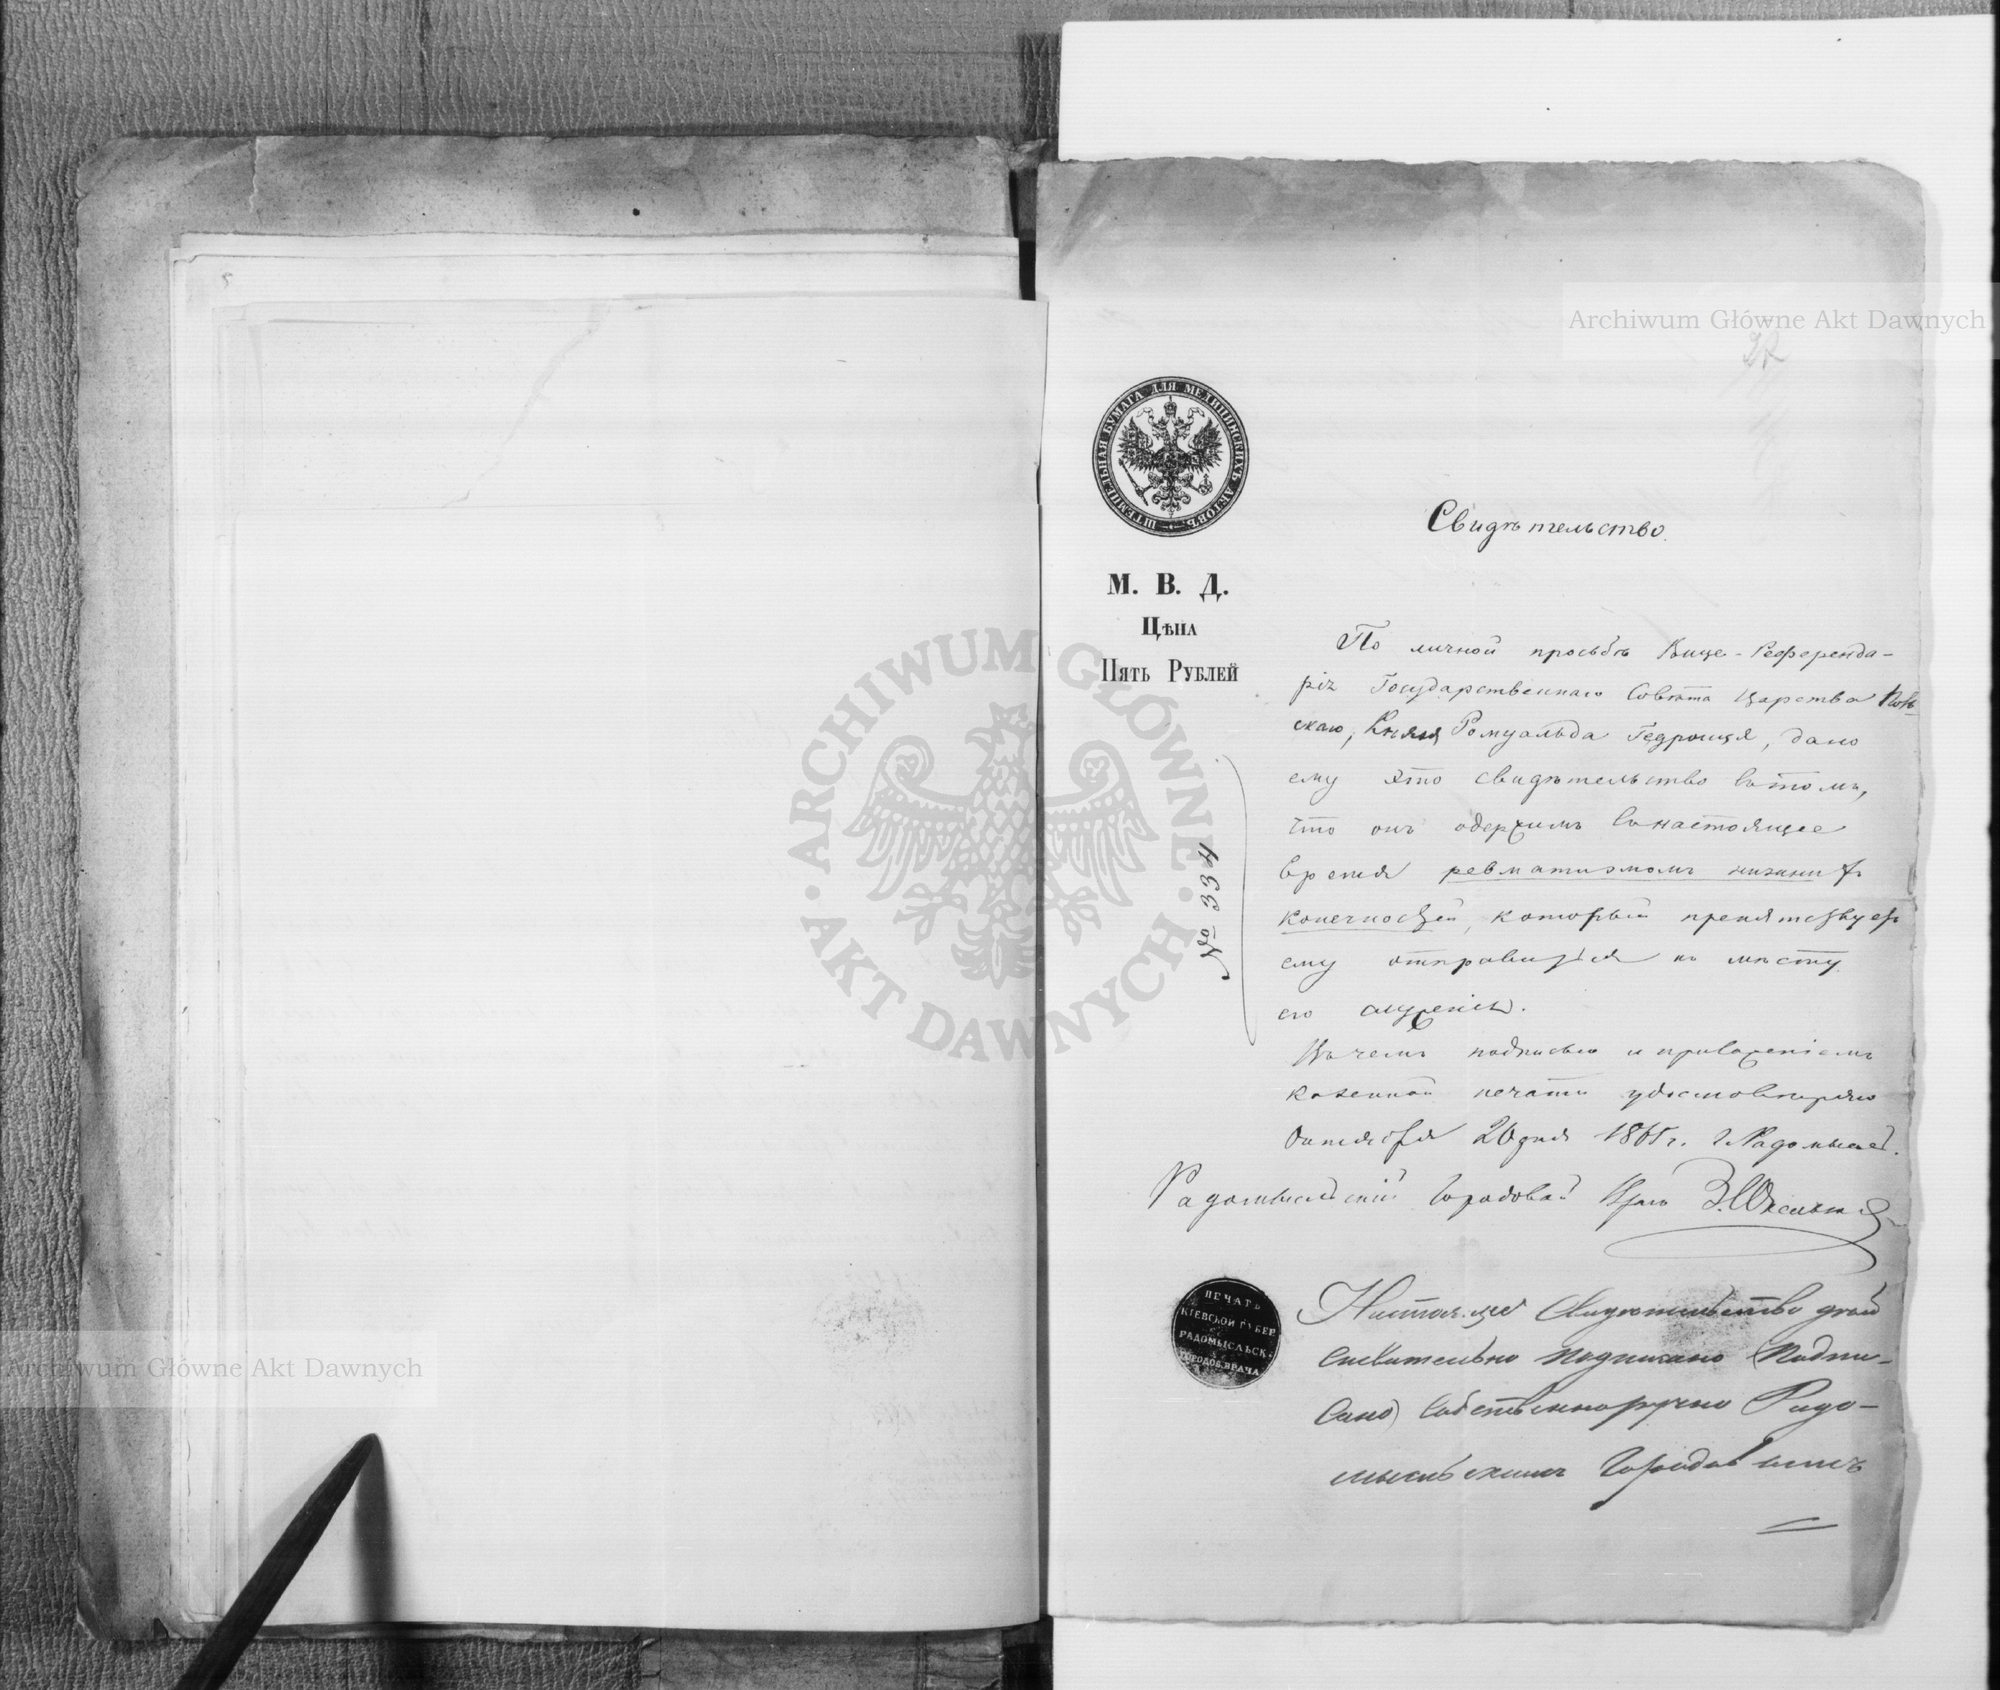 Archiwum Główne Akt Dawnych
32
ШТЕМПЕЛЬНАЯ БУМАГА ДЛЯ МЕДИЦИНСКИХЪ АКТОВЪ
М. В. Д.
Цѣна
Пять Рублей
№ 334
Свидѣтельство.
По личной просьбѣ Вице-Референда-
рія Государственнаго Совѣта Царства Поль-
скаго, Князя Ромуальда Гедройця, дано
ему это свидѣтельство въ томъ,
что онъ одержимъ въ настоящее
время ревматизмомъ нижнихъ
конечностей, который препятствуетъ
ему отправиться къ мѣсту
его служенія.
Въ чемъ подписью и приложеніемъ
казенной печати удостовѣряю
Октября 20 дня 1865 г. г. Радомысль.
Радомысльскій Городовой Врачъ
ПЕЧАТЬ
КІЕВСКОЙ ГУБЕР
РАДОМЫСЛЬСК.
ГОРОДОВ. ВРАЧА
Настоящее Свидѣтельство дѣй
ствительно подписано (Подпи-
сано) собственноручно Радо-
мысльскимъ Городовымъ
ARCHIWUM GŁÓWNE AKT DAWNYCH
Archiwum Główne Akt Dawnych